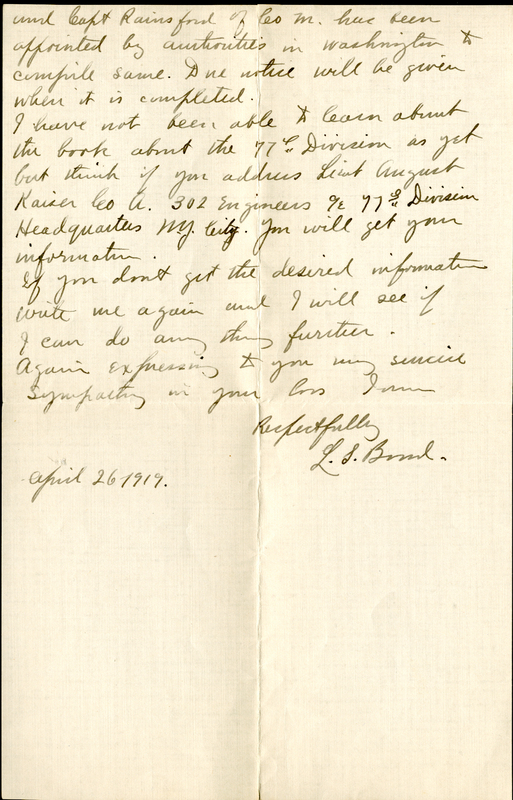 and Capt Rainsford of Co M. has been
appointed by authorities in Washington to
compile same. Due notice will be given
when it is completed.
I have not been able to learn about
the book about the 77th Division as yet
but think if you address Lieut August
Kaiser Co A. 302 Engineers % 77th Division
Headquarters N.Y. City. You will get your
information.
If you dont get the desired information
write me again and I will see if
I can do any thing further.
Again expressing to you my sincere
sympathy in your loss I am
Respectfully
L. S. Bond.
April 26-1919.